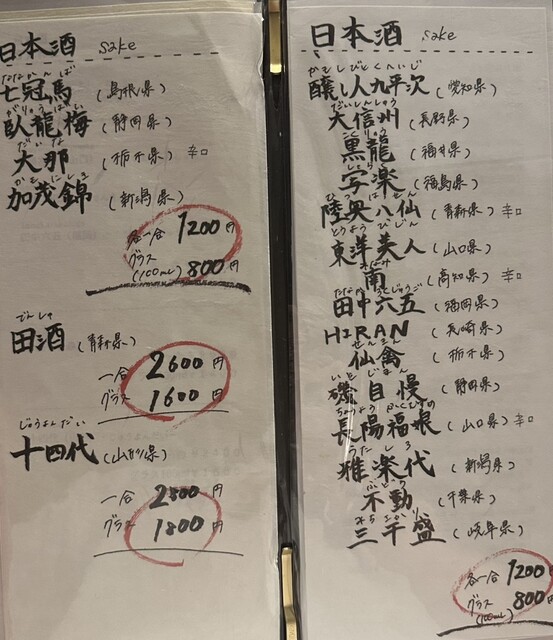 日本酒 sake
ななかんば
七冠馬 (島根県)
がりゅうばい
臥龍梅 (静岡県)
だいな
大那 (栃木県) 辛口
かもにしき
加茂錦 (新潟県)
各一合 1200円
グラス (100ml) 800円
でんしゅ
田酒 (青森県)
一合 2600円
グラス 1600円
じゅうよんだい
十四代 (山形県)
一合 2800円
グラス 1800円
日本酒 sake
かもしびとくへいじ
醸し人九平次 (愛知県)
だいしんしゅう
大信州 (長野県)
こくりゅう
黒龍 (福井県)
写楽 (福島県)
陸奥八仙 (青森県) 辛口
とうようびじん
東洋美人 (山口県)
みなみ
南 (高知県) 辛口
たなかろくじゅうご
田中六五 (福岡県)
HIRAN (長崎県)
せんきん
仙禽 (栃木県)
いそじまん
磯自慢 (静岡県)
長陽福娘 (山口県) 辛口
うたしろ
雅楽代 (新潟県)
ふどう
不動 (千葉県)
みちさかり
三千盛 (岐阜県)
各一合 1200円
グラス (100ml) 800円